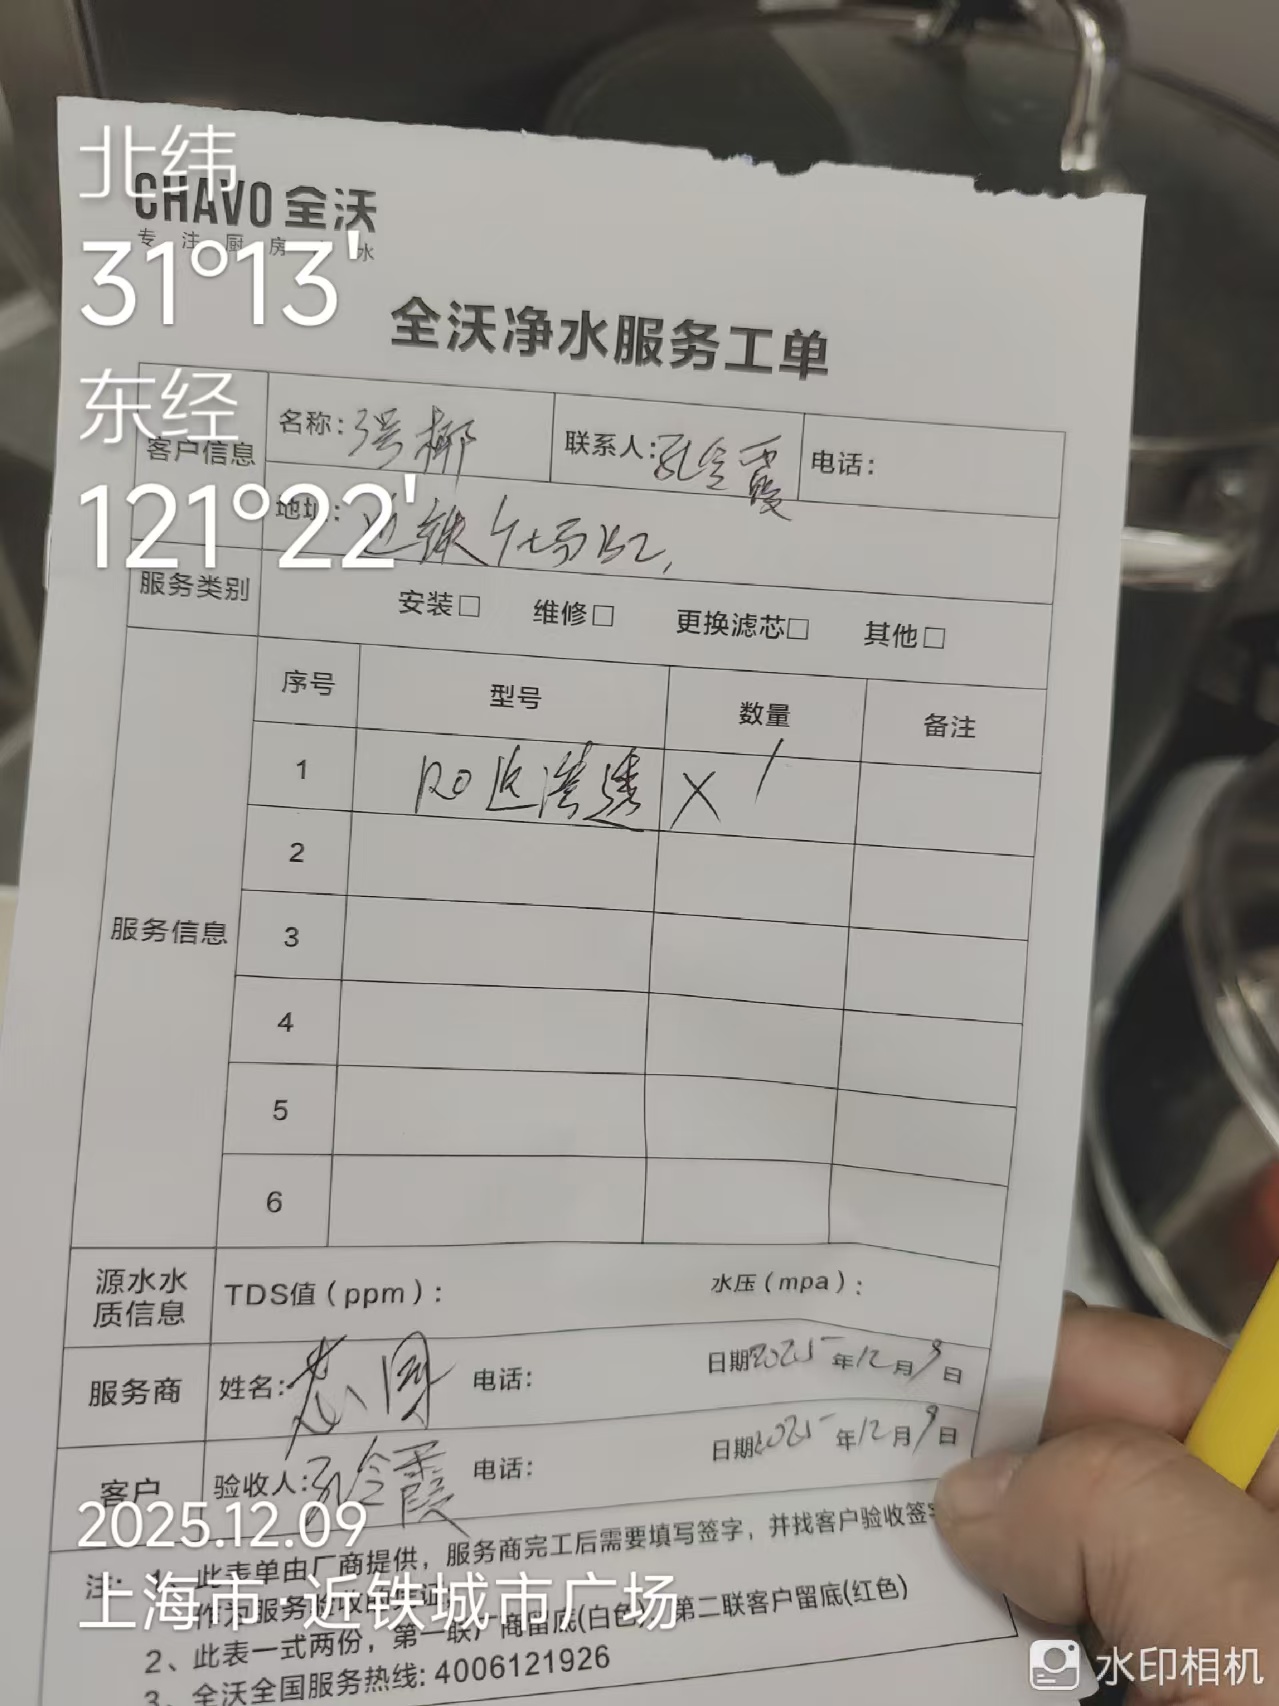 北纬
31°13'
东经
121°22'
CHAVO 全沃
专注厨房 水
全沃净水服务工单
客户信息 名称: 联系人:孔令霞 电话:
地址: 近铁广场B2,
服务类别 安装□ 维修□ 更换滤芯□ 其他□
服务信息 序号 型号 数量 备注
1 RO反渗透 X 1
2
3
4
5
6
源水水质信息 TDS值(ppm): 水压(mpa):
服务商 姓名: 电话: 日期2025年12月9日
客户 验收人:孔令霞 电话: 日期2025年12月9日
2025.12.09
上海市·近铁城市广场
注: 1、此表单由厂商提供,服务商完工后需要填写签字,并找客户验收签字
作为服务
2、此表一式两份,第一联厂商留底(白色) 第二联客户留底(红色)
3、全沃全国服务热线: 4006121926
水印相机